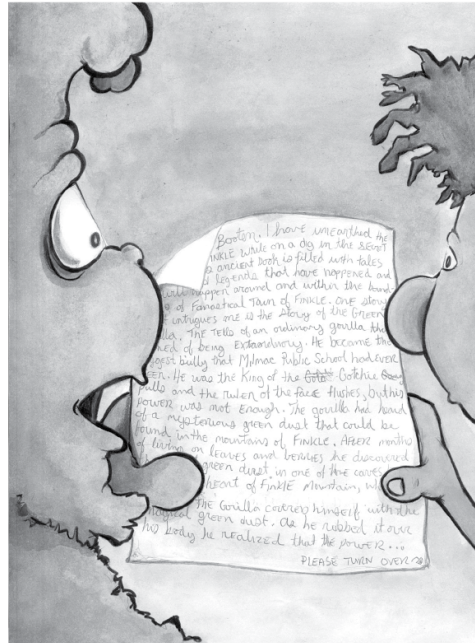 Booten, I have unearthed the
INKLE while on a dig in the SECRET
ancient book is filled with tales
legends that have happened and
happen around and within the land
of Fanastical Town of FINKLE. One story
intrigues one is the story of the Green
illa, The Tells of an ordinary gorilla tha
of being Extraordinary. He became the
ggest bully that Milmac Public School had ever
EEN. He was the King of the Cotchie
pulls and the ruler of the face flushes, but his
power was not enough. The gorilla had heard
of a mysterious green dust that could be
found in the mountains of FINKLE. After months
of living on leaves and berries he discovered
green dust, in one of the caves
heart of FINKLE Mountain, w
THE Gorilla covered himself with the
magical green dust. As he rubbed it over
his body he realized that the power...
PLEASE TURN OVER